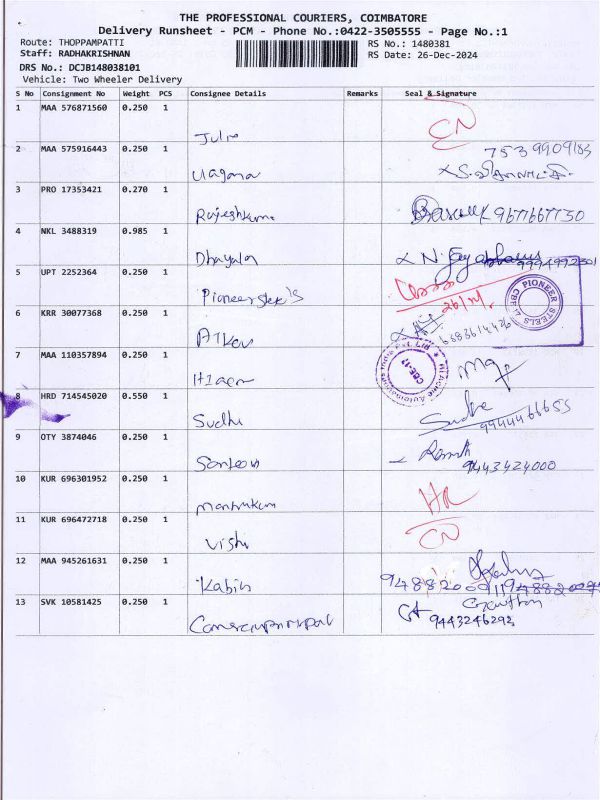 THE PROFESSIONAL COURIERS, COIMBATORE
Delivery Runsheet - PCM - Phone No.:0422-3505555 - Page No.:1
Route: THOPPAMPATTI RS No.: 1480381
Staff: RADHAKRISHNAN RS Date: 26-Dec-2024
DRS No.: DCJB148038101
Vehicle: Two Wheeler Delivery
S No Consignment No Weight PCS Consignee Details Remarks Seal & Signature
1 MAA 576871560 0.250 1
Julie CN
2 MAA 575916443 0.250 1
7539909183
3 PRO 17353421 0.270 1
Rajeshkumar 9677667730
4 NKL 3488319 0.985 1
Dhayala N. 9994992301
5 UPT 2252364 0.250 1
Pioneer 26/12/ PIONEER STEELS CBE
6 KRR 30077368 0.250 1
7 MAA 110357894 0.250 1
8 HRD 714545020 0.550 1
Sudhi 9944466655
9 OTY 3874046 0.250 1
Santosh 9443424000
10 KUR 696301952 0.250 1
HR
11 KUR 696472718 0.250 1
Vishu CN
12 MAA 945261631 0.250 1
Kabin
13 SVK 10581425 0.250 1
9443246293